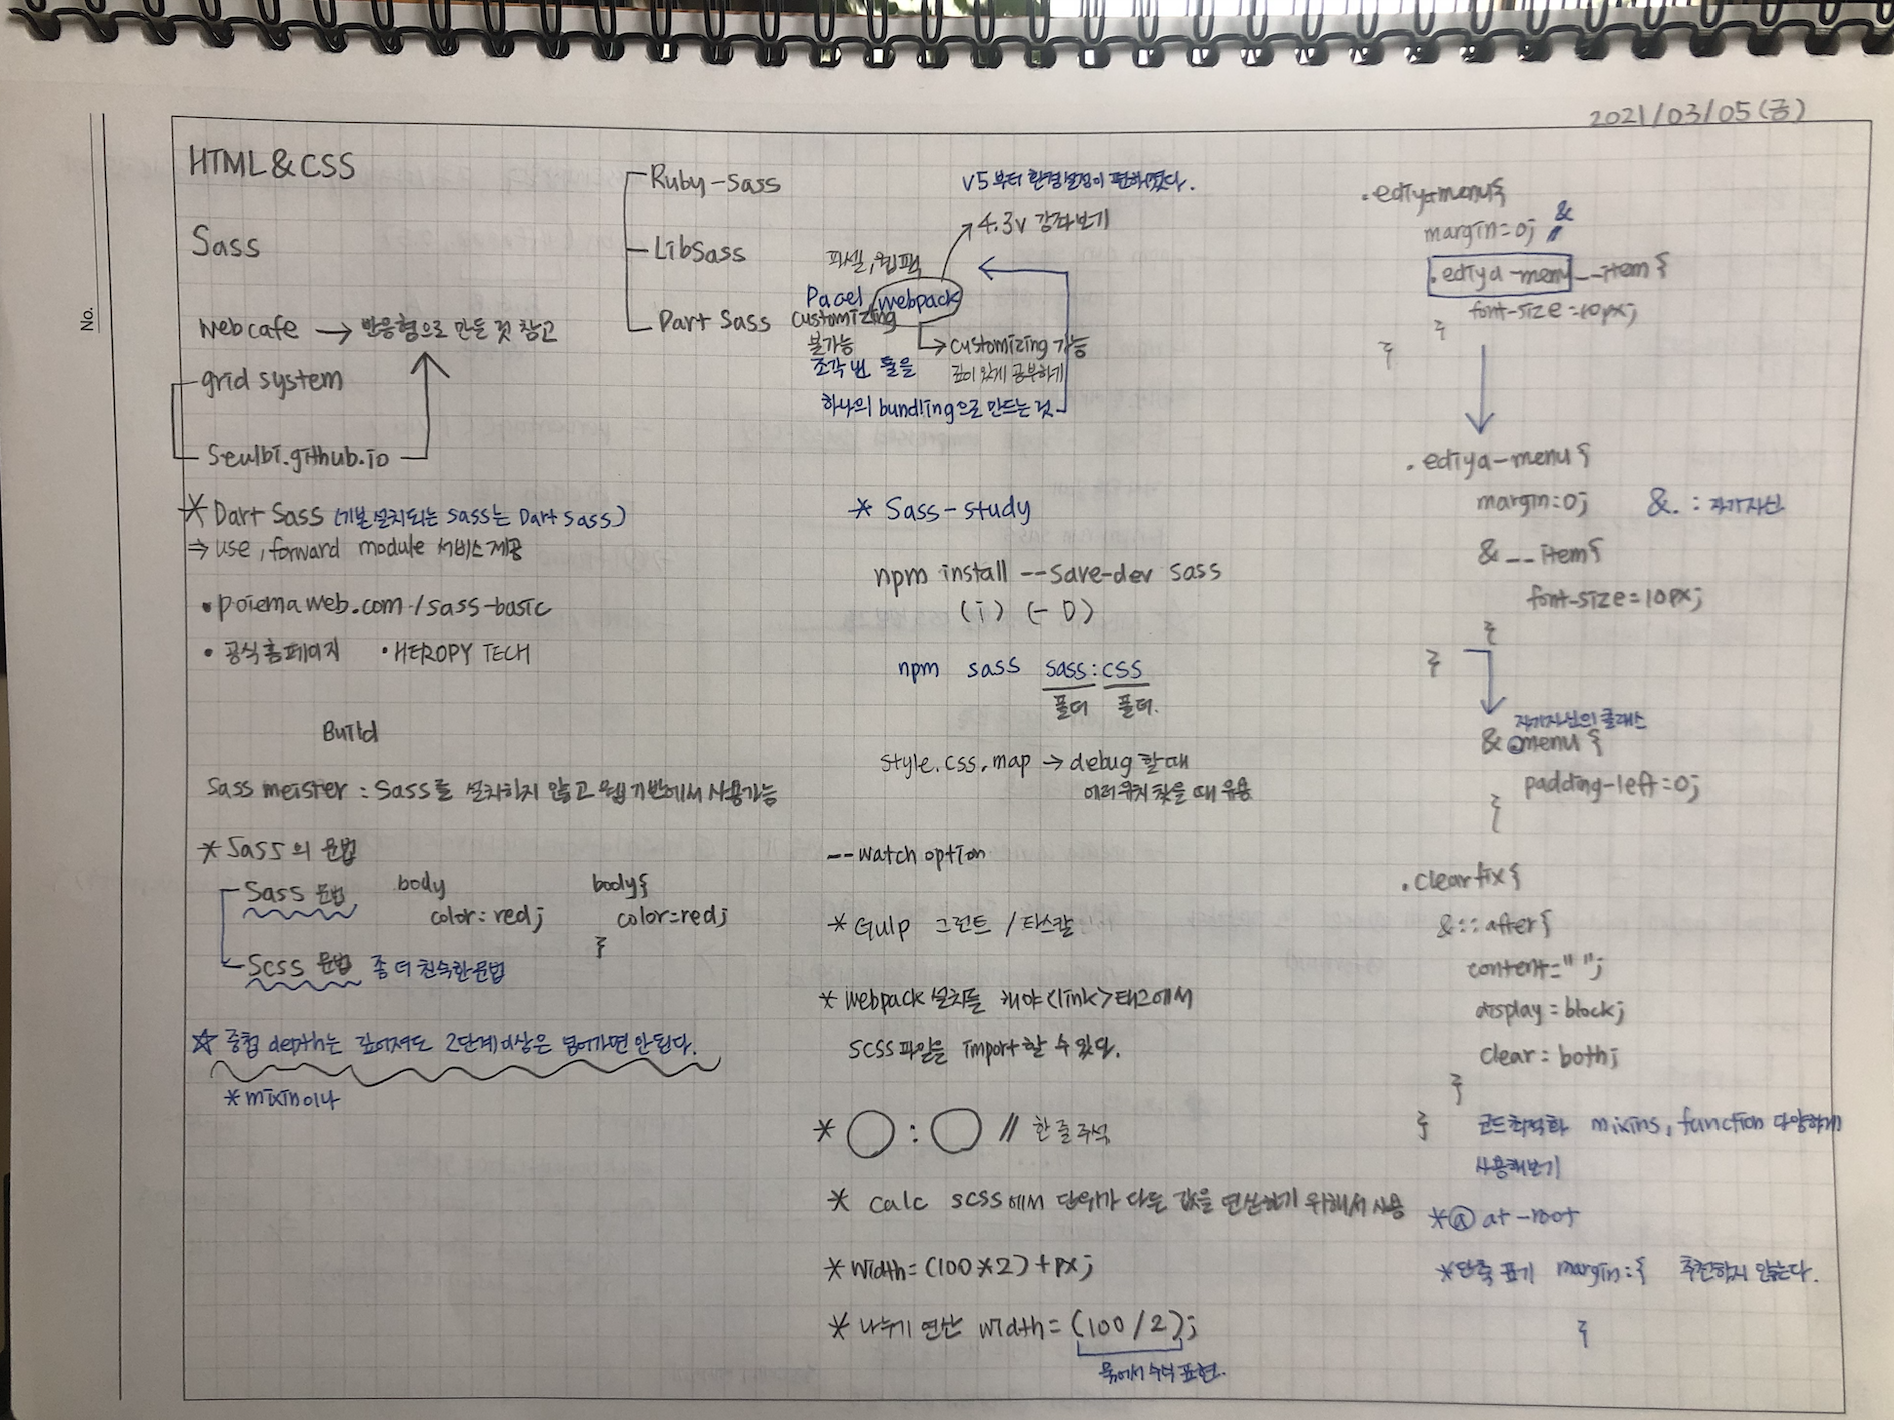 2021/03/05(금)
No.
HTML&CSS
Sass
webcafe → 반응형으로 만든 것 참고
grid system
seulbi.github.io
* Dart Sass (기본 설치되는 sass는 Dart sass)
⇒ use, forward module 서비스 제공
• poiemaweb.com/sass-basic
• 공식 홈페이지 • HEROPY TECH
Build
Sass meister : Sass를 설치하지 않고 웹 기반에서 사용가능
* Sass의 문법
Sass 문법
body
color: red;
body{
color=red;
}
Scss 문법 좀 더 친숙한 문법
☆ 중첩 depth는 깊어져도 2단계 이상은 넘어가면 안된다.
* mixin이나
Ruby-sass
LibSass
Dart Sass
v5부터 환경설정이 편해졌다.
4.3v 강좌보기
파셀, 웹팩
Pacel, webpack
customizing
불가능
→ customizing 가능
깊이 있게 공부하기
조각 번 들을
하나의 bundling으로 만드는 것
* Sass-study
npm install --save-dev sass
(i) (-D)
npm sass sass:css
폴더 폴더.
style.css.map → debug 할 때
에러 위치 찾을 때 유용
--watch option
* Gulp 그런트 / 타스칼
* webpack 설치를 해야 <link>태그에서
SCSS 파일을 import 할 수 있다.
* ◯ : ◯ // 한 줄 주석
* calc scss에서 단위가 다른 값을 연산하기 위해서 사용
* width=(100*2)+px;
* 나누기 연산 width=(100/2);
묶어서 수식 표현.
.ediya-menu{
margin=0; &
.ediya-menu__item{
font-size=10px;
}
}
.ediya-menu{
margin:0; &. : 자기자신
&__item{
font-size=10px;
}
}
자기자신의 클래스
& .menu{
padding-left=0;
}
.clearfix{
&::after{
content=" ";
display=block;
clear: both;
}
} 코드 최적화 mixins, function 다양하게
사용해보기
* @ at-root
* 단축 표기 margin:{ 추천하지 않는다.
}